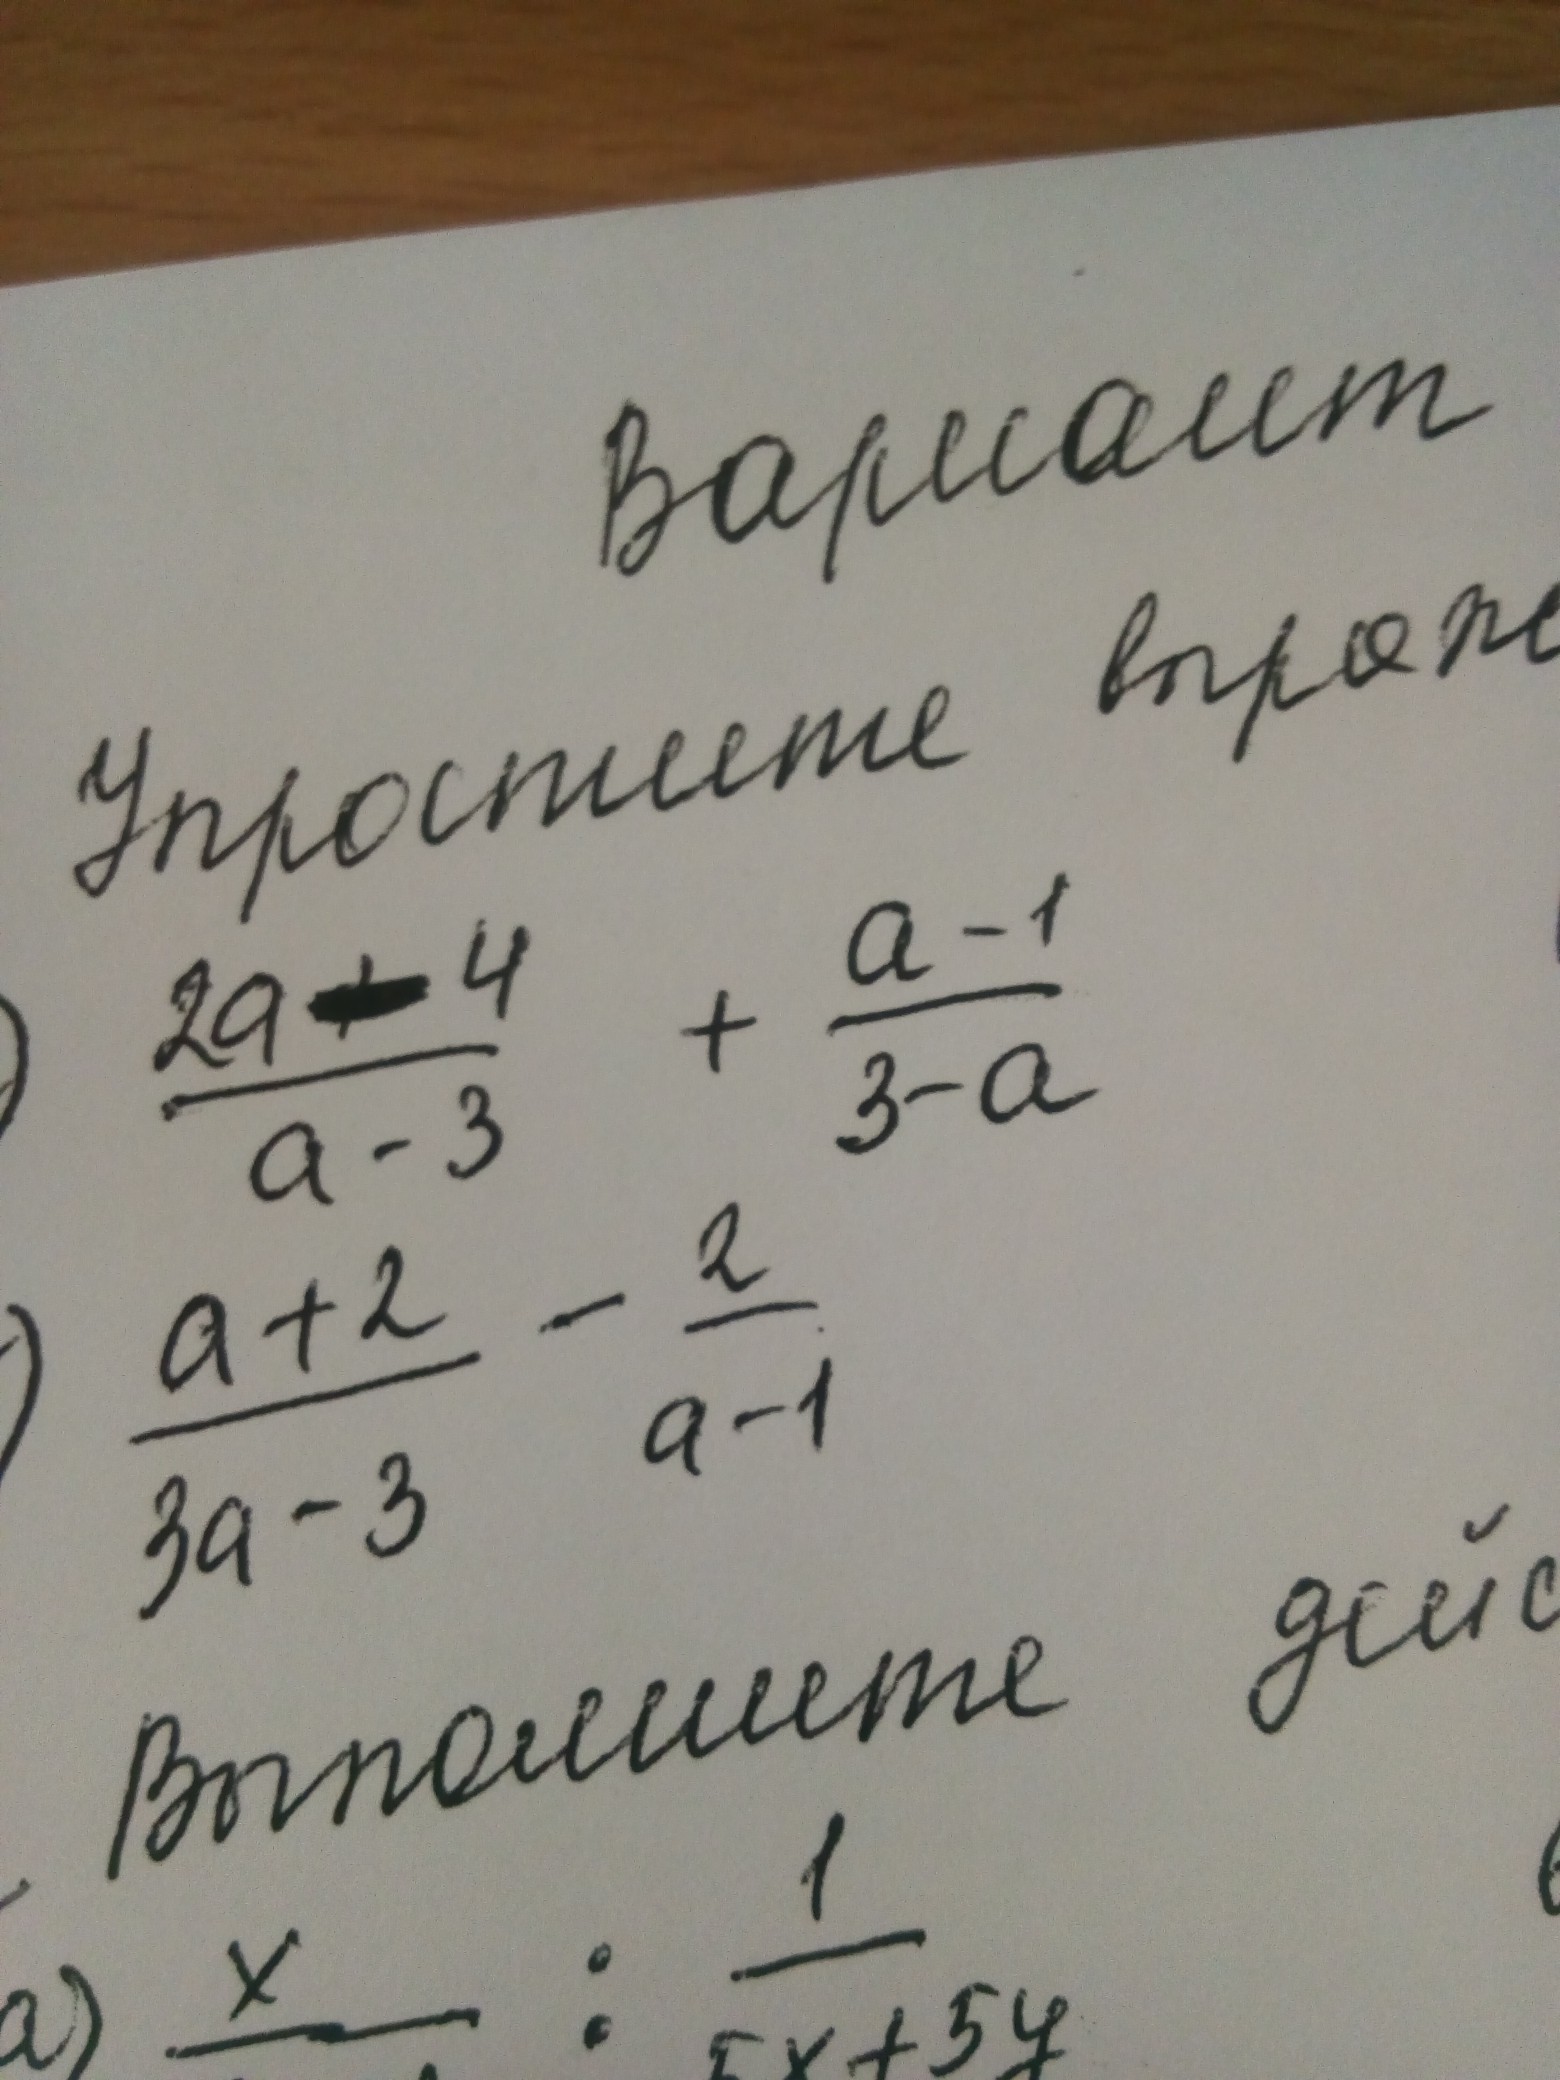 Вариант
Упростите
2a - 4 / a - 3 + a - 1 / 3 - a
a + 2 / 3a - 3 - 2 / a - 1
Выполните
а) x : 1 / 5x + 5y